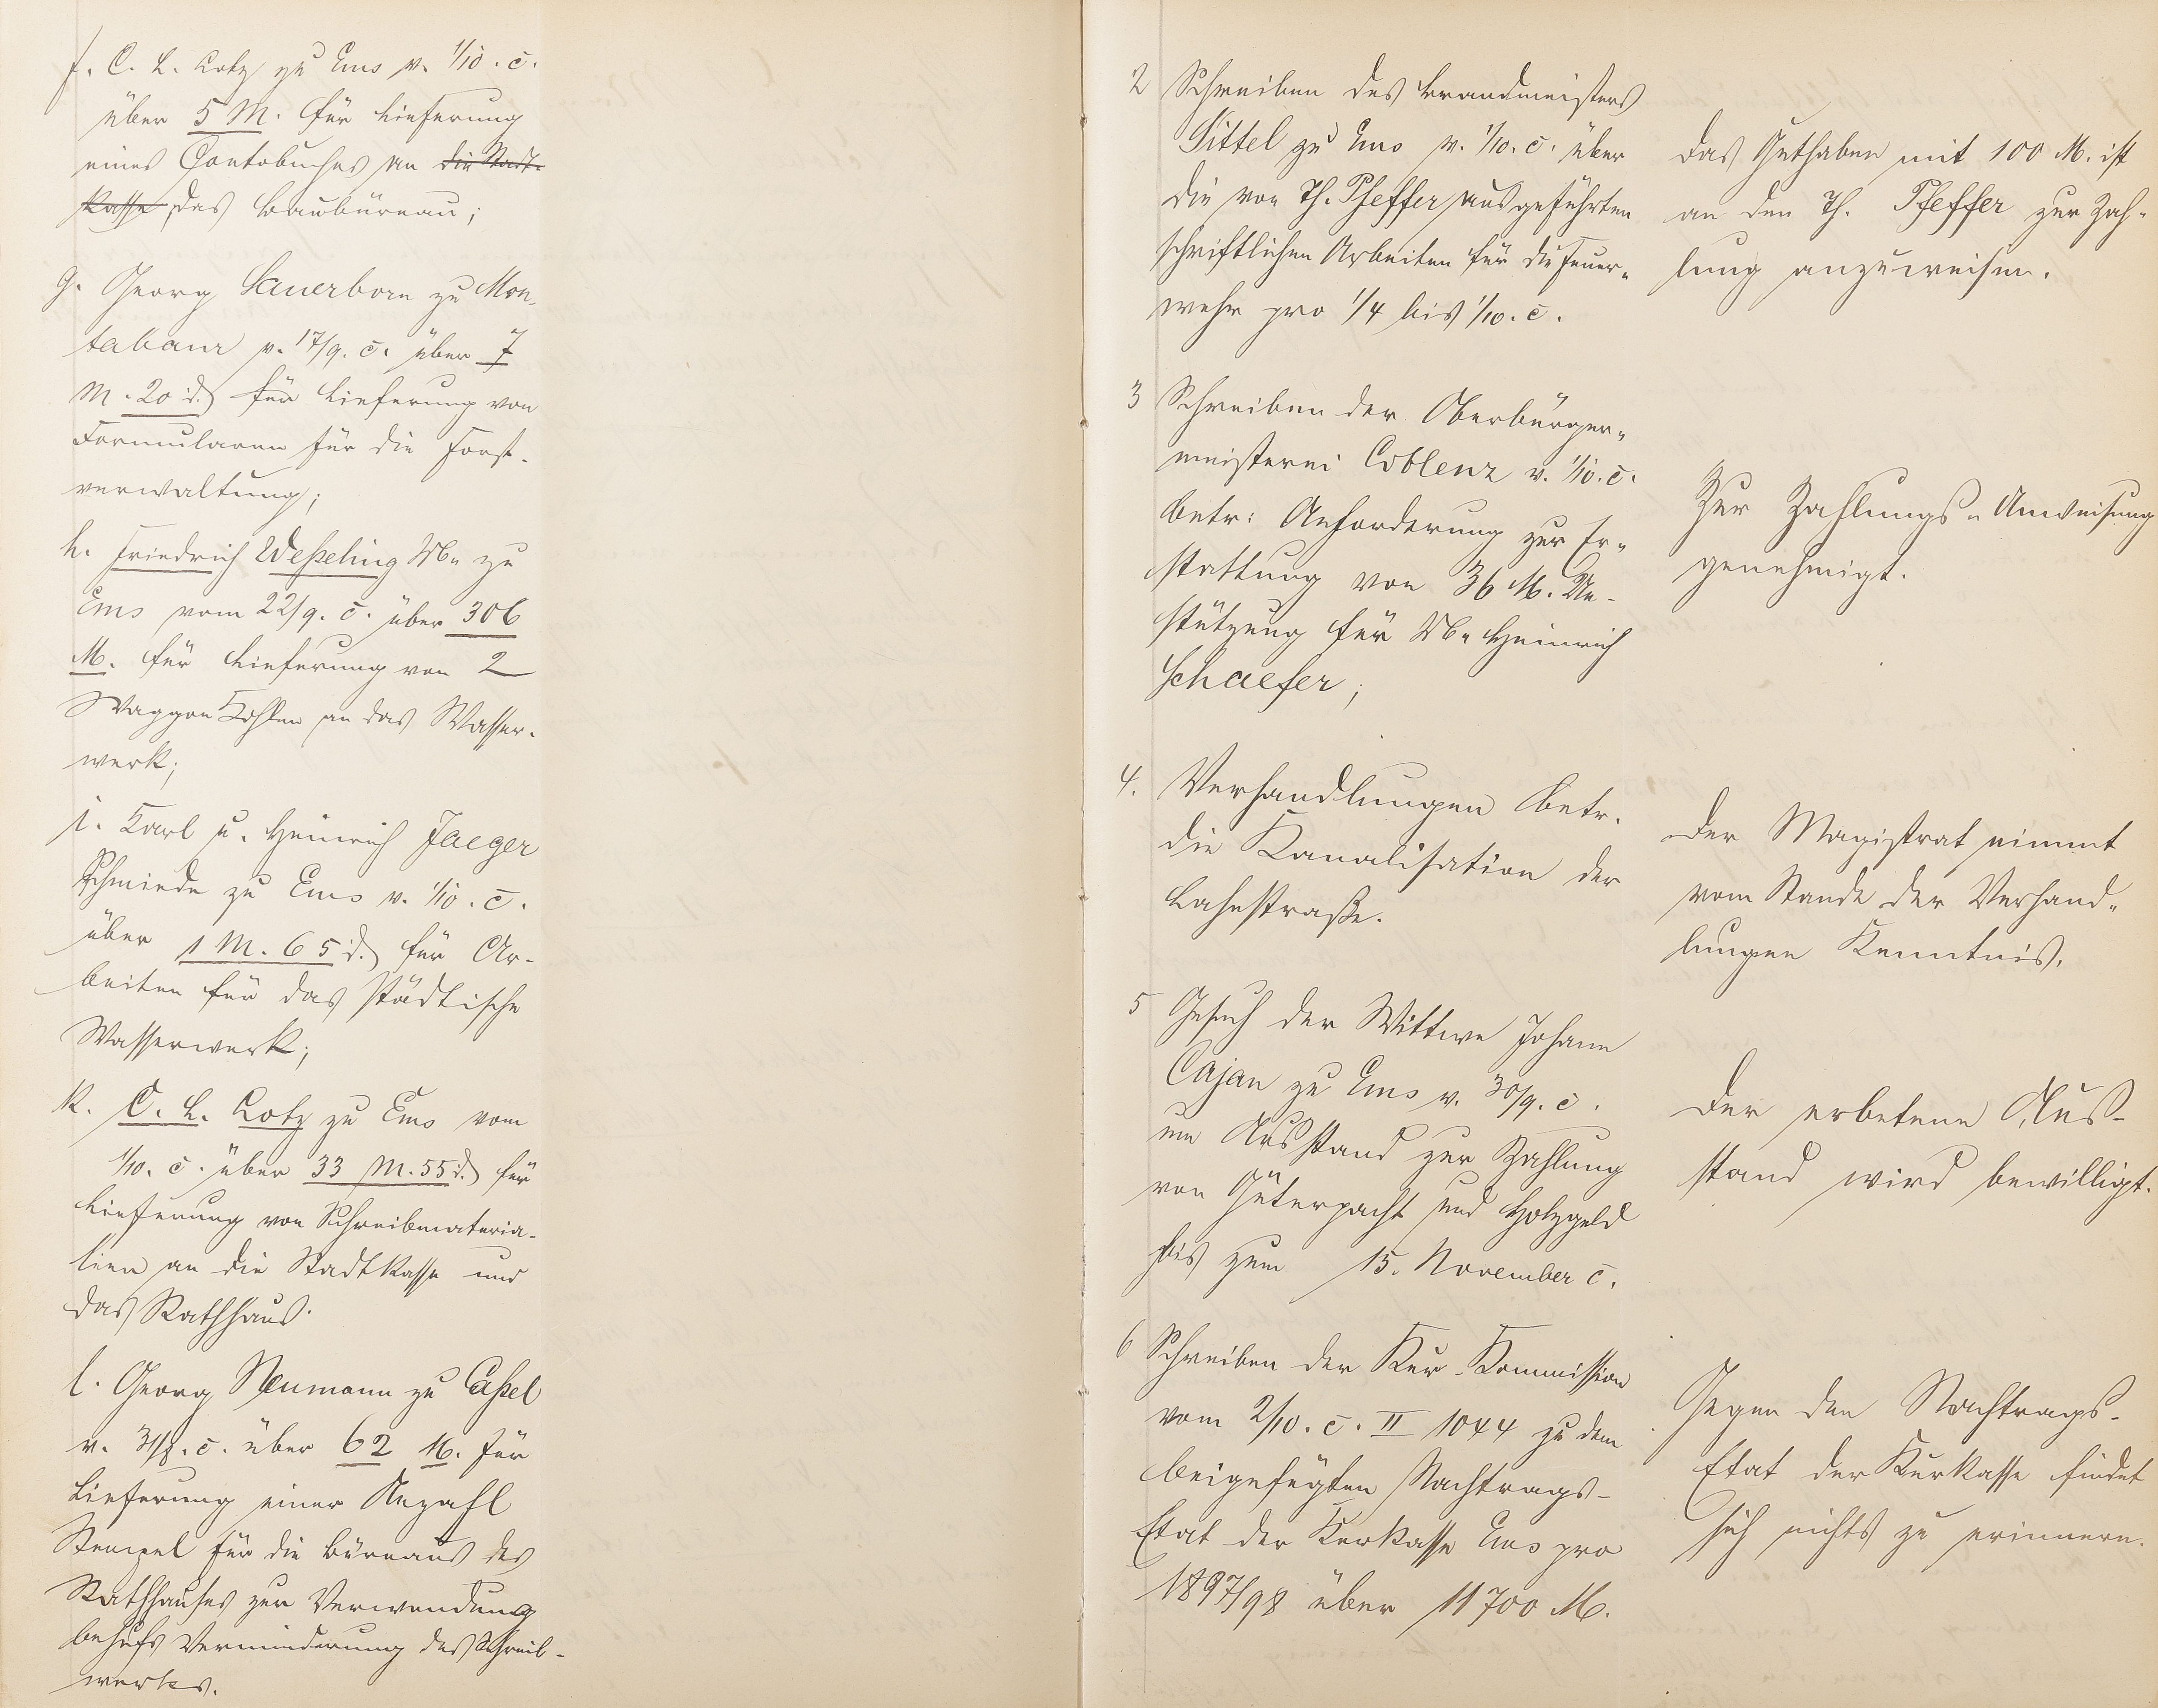 f. C. L. Lotz zu Ems v. 1/10. c̄.
über 5 M. für Lieferung
eines Contobuches an die Stadt-
kasse das Baubüreau;
g. Georg Sauerborn zu Mon-
tabaur v. 17/9. c̄. über 7
M. 20 d. für Lieferung von
Formularen für die Forst-
verwaltung;
h. Friedrich Weßeling Ww zu
Ems vom 22/9. c̄. über 306
M. für Lieferung von 2
Waggon Kohlen an das Wasser-
werk;
i. Karl u. Heinrich Jaeger
Schmiede zu Ems v. 1/10. c̄.
über 1 M. 65 d. für Ar-
beiten für das städtische
Wasserwerk;
k. C. L. Lotz zu Ems vom
1/10. c̄. über 33 M. 55 d. für
Lieferung von Schreibmateria-
lien an die Stadtkasse und
das Rathhaus.
l. Georg Neumann zu Caßel
v. 31/8. c̄. über 62 M. für
Lieferung einer Anzahl
Stempel für die Büreaus des
Rathhauses zur Verwendung
behufs Verminderung des Schreib-
werkes.
2 Schreiben des Brandmeisters
Sittel zu Ems v. 1/10. c̄. über
die von Th. Pfeffer ausgeführten
schriftlichen Arbeiten für die Feuer-
wehr pro 1/4 bis 1/10. c̄.
das Guthaben mit 100 M. ist
an den Th. Pfeffer zur Zah-
lung anzuweisen.
3 Schreiben der Oberbürger-
meisterei Coblenz v. 1/10. c̄.
betr: Anforderung zur Er-
stattung von 36 M. Un-
stützung für Ww Heinrich
Schaefer;
Zur Zahlungs-Anweisung
genehmigt.
4. Verhandlungen betr.
die Kanalisation der
Lahnstraße.
Der Magistrat nimmt
vom Stande der Verhand-
lungen Kenntnis.
5 Gesuch der Wittwe Johann
Cajan zu Ems v. 30/9. c̄.
um Ausstand zur Zahlung
von Güterpacht und Holzgeld
bis zum 15. November c̄.
Der erbetene Aus-
stand wird bewilligt.
6 Schreiben der Kur-Kommission
vom 2/10. c̄. II 1044 zu dem
beigefügten Nachtrags-
Etat der Kurkasse Ems pro
1897/98 über 11700 M.
Gegen den Nachtrags-
Etat der Kurkasse findet
sich nichts zu erinnern.